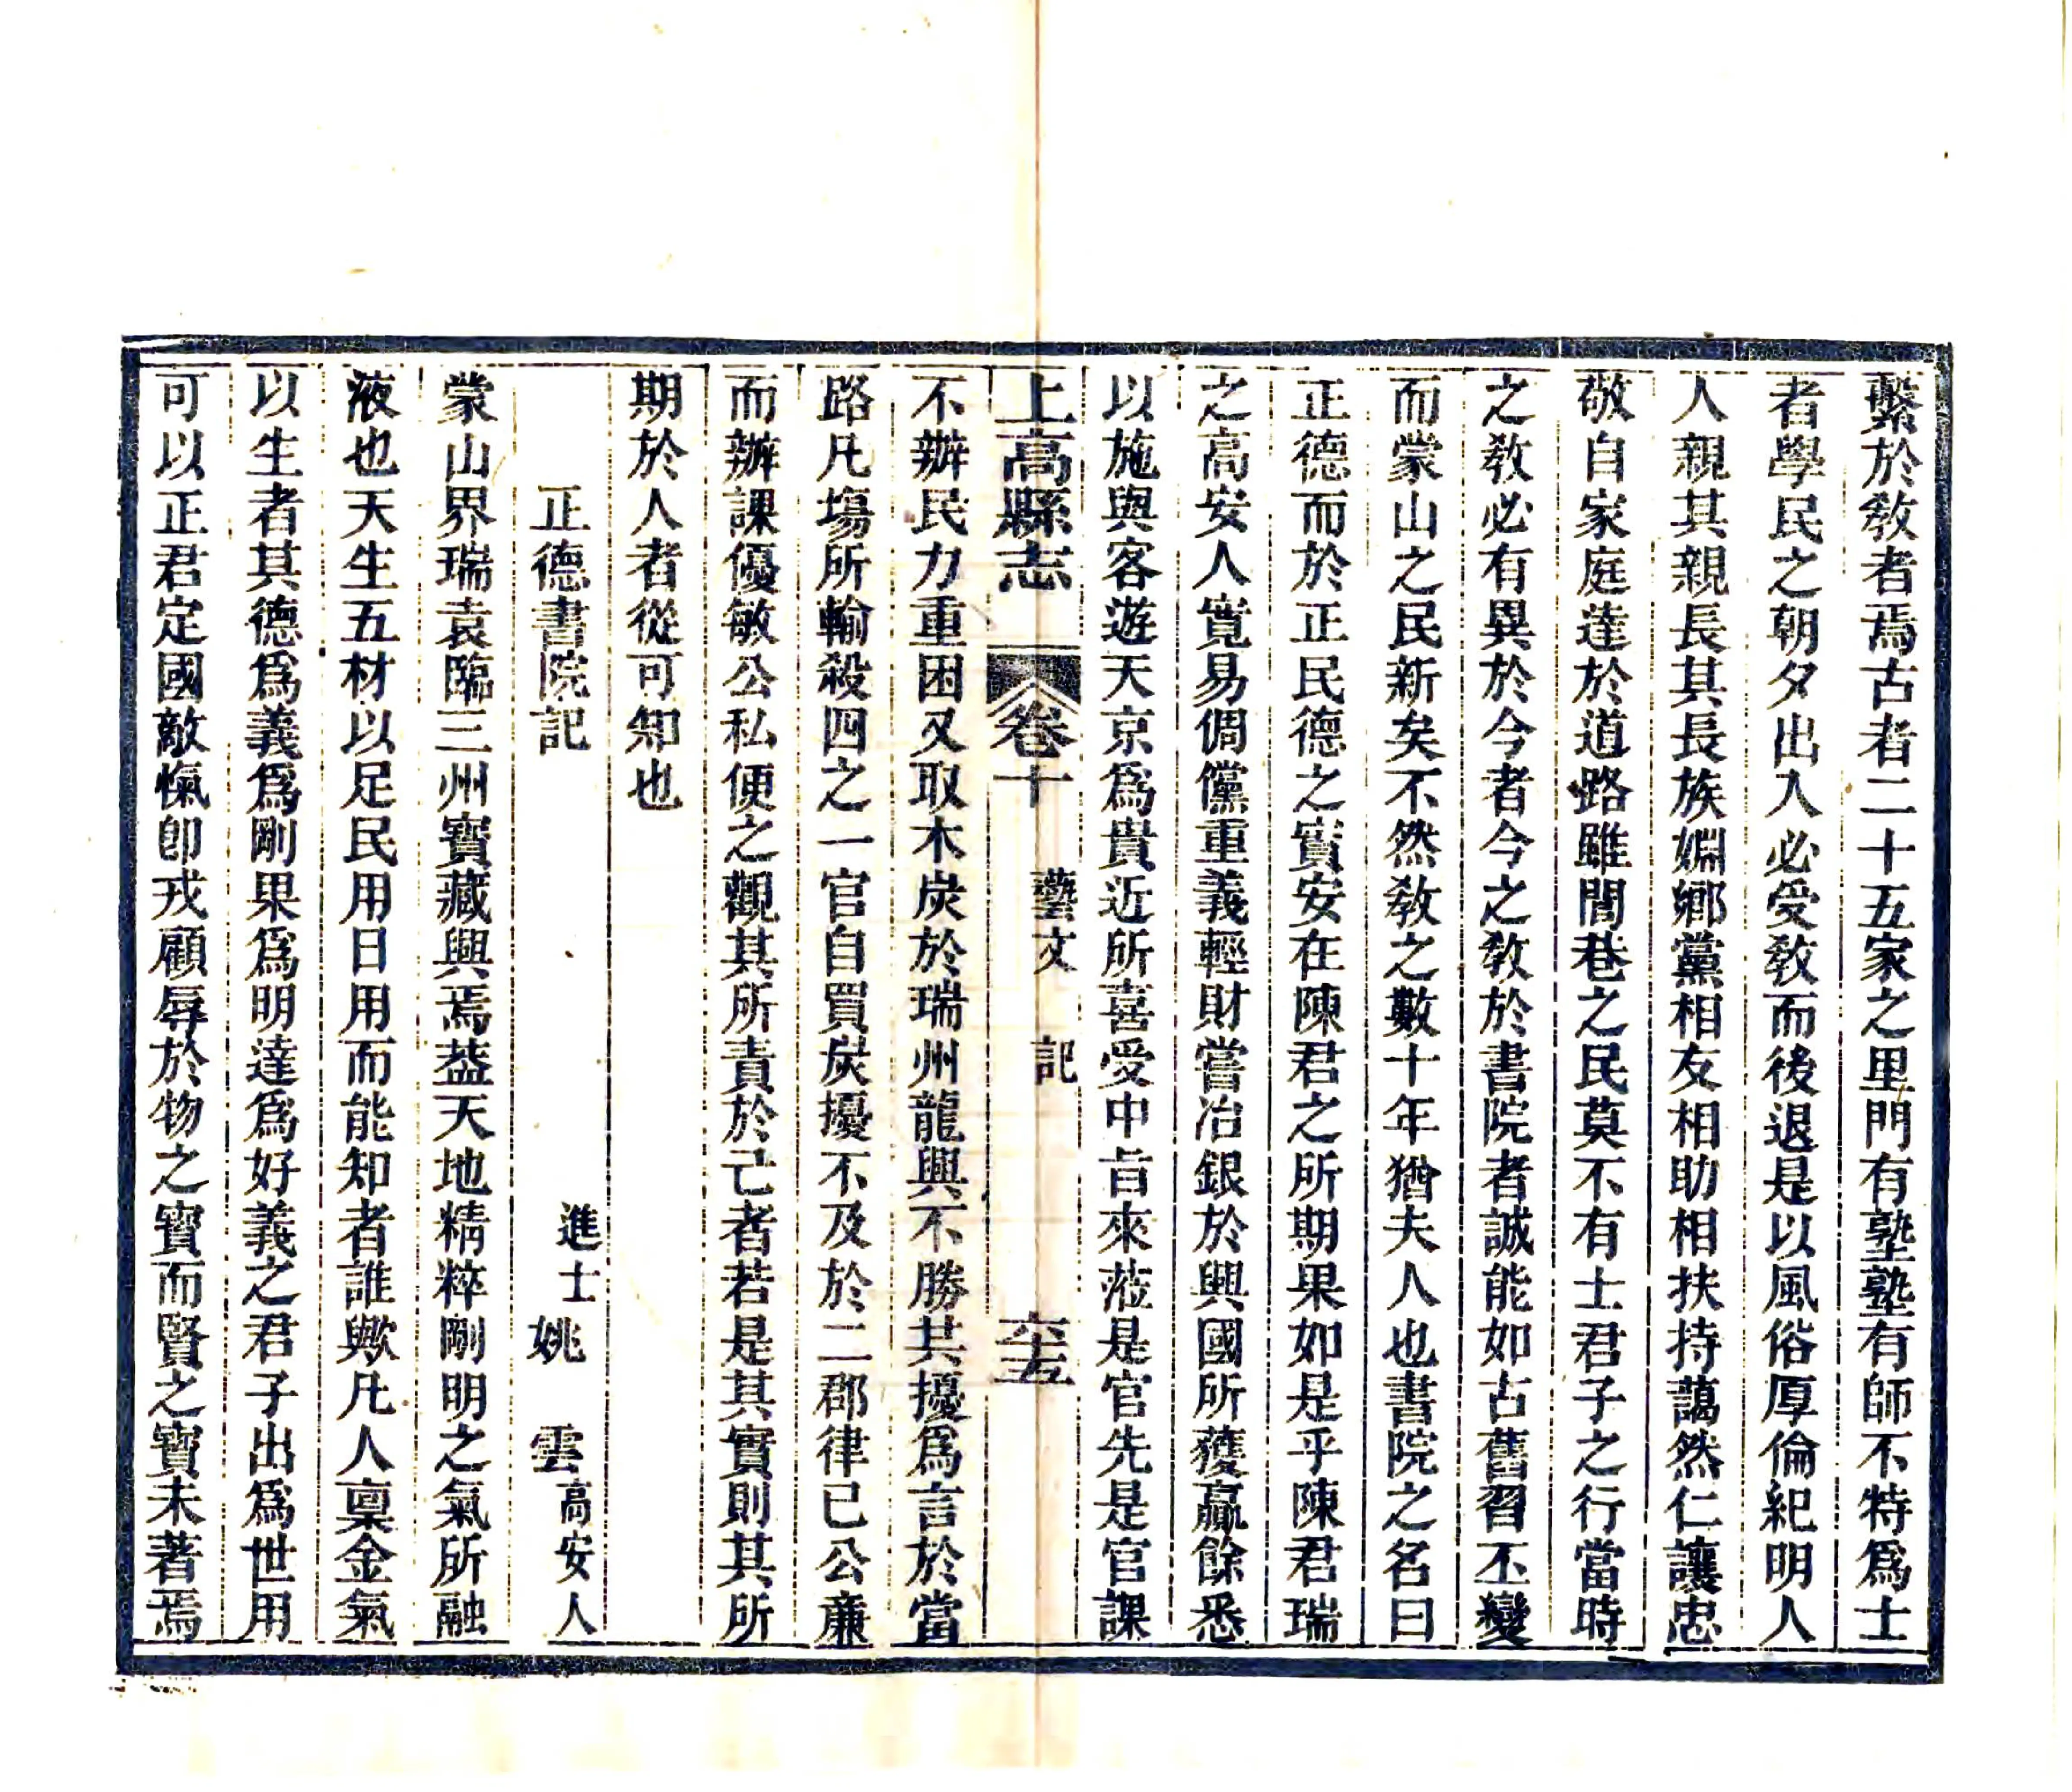 繫於敎者焉古者二十五家之里門有塾塾有師不特爲士
者學民之朝夕出入必受敎而後退是以風俗厚倫紀明人
人親其親長其長族婣鄉黨相友相助相扶持藹然仁讓忠
敬自家庭達於道路雖閭巷之民莫不有士君子之行當時
之敎必有異於今者今之敎於書院者誠能如古舊習丕變
而蒙山之民新矣不然敎之數十年猶夫人也書院之名曰
正德而於正民德之實安在陳君之所期果如是乎陳君瑞
之高安人寬易倜儻重義輕財嘗冶銀於興國所獲贏餘悉
以施與客遊天京爲貴近所喜受中旨來蒞是官先是官課
上高縣志 卷十 藝文 記 六十五
不辦民力重困又取木炭於瑞州龍興不勝其擾爲言於當
路凡塲所輸殺四之一官自買炭擾不及於二郡律已公廉
而辦課優敏公私便之觀其所責於己者若是其實則其所
期於人者從可知也
正德書院記 進士姚雲高安人
蒙山界瑞袁臨三州寶藏興焉葢天地精粹剛明之氣所融
液也天生五材以足民用日用而能知者誰歟凡人禀金氣
以生者其德爲義爲剛果爲明達爲好義之君子出爲世用
可以正君定國敵愾卽戎顧辱於物之寶而賢之寶未著焉